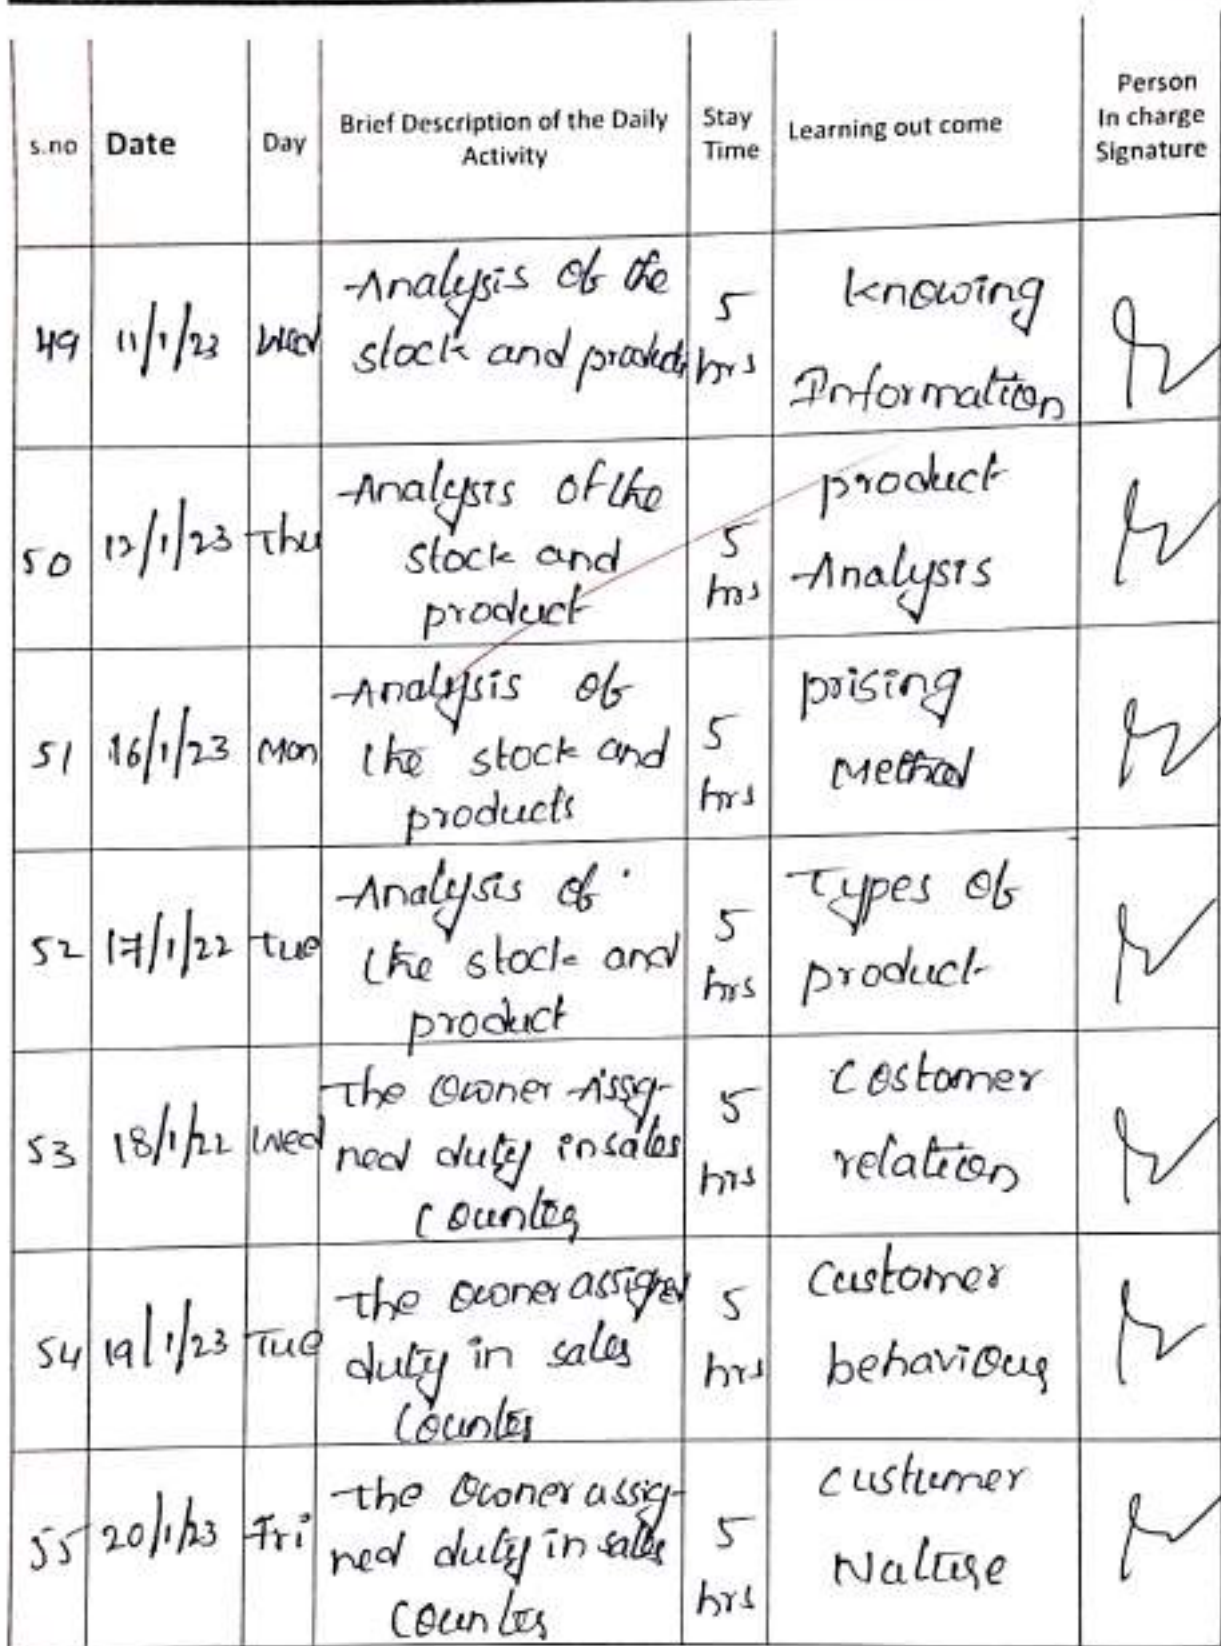 s.no Date Day Brief Description of the Daily Activity Stay Time Learning out come Person In charge Signature
49 11/1/23 Wed Analysis of the stock and products 5 hrs knowing Information
50 12/1/23 Thu Analysis of the stock and product 5 hrs product Analysis
51 16/1/23 Mon Analysis of the stock and products 5 hrs prising Method
52 17/1/22 Tue Analysis of the stock and product 5 hrs Types of product
53 18/1/22 Wed The Owner Assig- ned duty in sales Counter 5 hrs Costomer relation
54 19/1/23 Tue The owner assigned duty in sales Counter 5 hrs Customer behaviour
55 20/1/23 Fri The Owner assig- ned duty in sales Counter 5 hrs custumer Nature